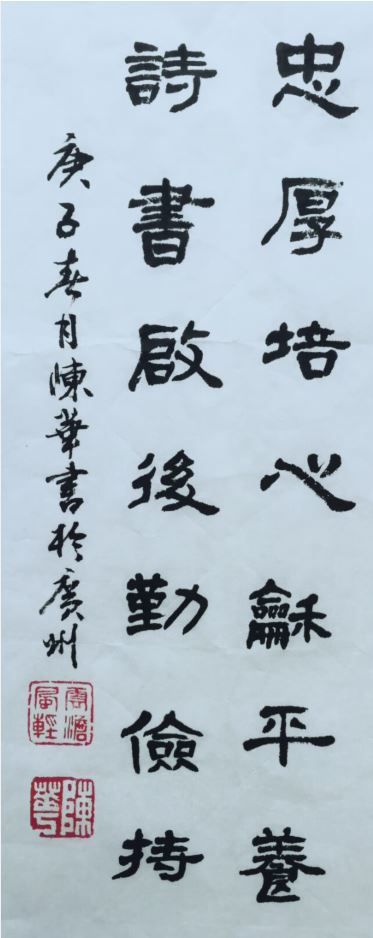 忠厚培心龢平養
詩書啟後勤儉持
庚子春月陳華書於廣州
雲澹風輕
陳華